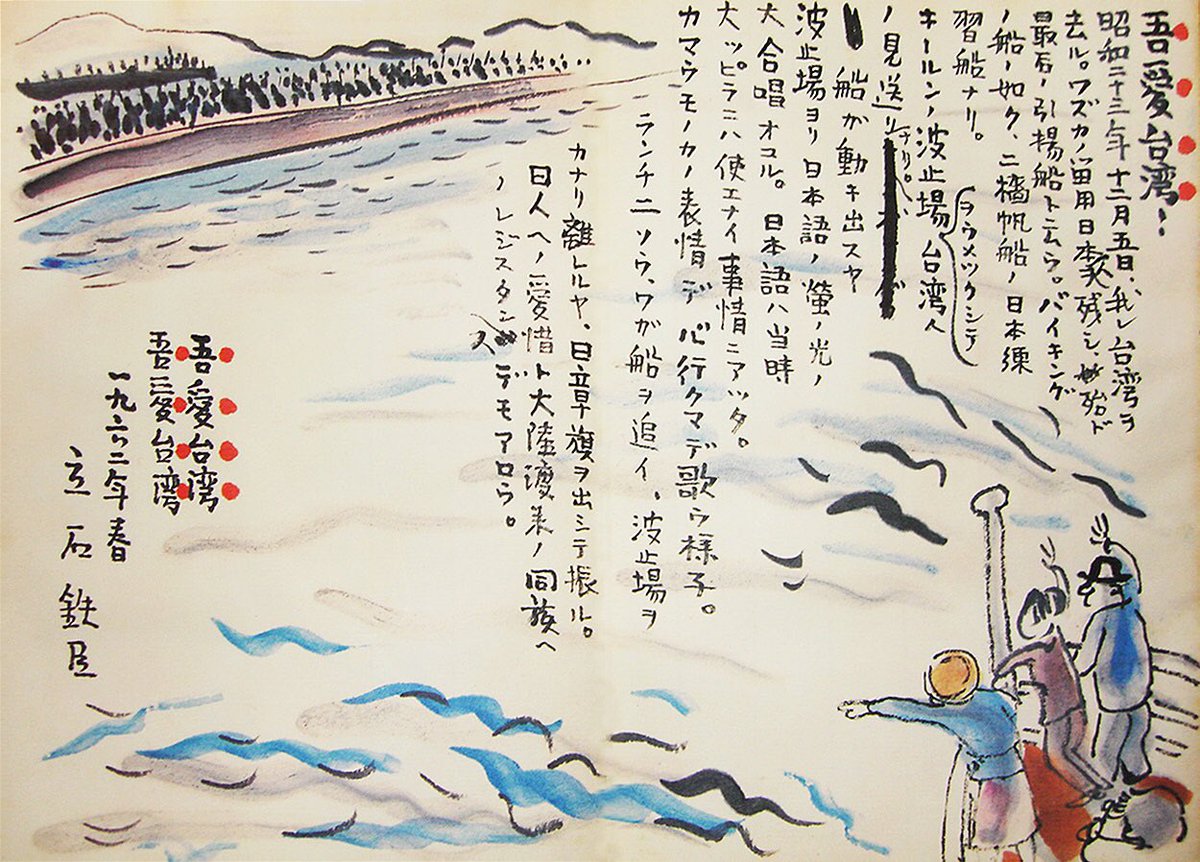 吾愛台湾!
昭和二十三年十二月五日、我レ台湾ヲ
去ル。ワズカノ留用日本 残シ、殆ド
最后ノ引揚船トユウ。バイキング
ノ船ノ如ク、二檣帆船ノ日本練
習船ナリ。
キールンノ波止場ヲウメツクシテ台湾人
ノ見送リナリ。
船が動キ出スヤ
波止場ヨリ日本語ノ螢ノ光ノ
大合唱オコル。日本語ハ当時
大ッピラニハ使エナイ事情ニアッタ。
カマウモノカノ表情デ 行クマデ歌ウ様子。
ランチ二ソウ、ワガ船ヲ追イ、波止場ヲ
カナリ離レルヤ、日章旗ヲ出シテ振ル。
日人ヘノ愛惜ト大陸渡来ノ同族ヘ
ノレジスタンスデモアロウ。
吾愛台湾
吾愛台湾
一九六二年春
立石鉄臣